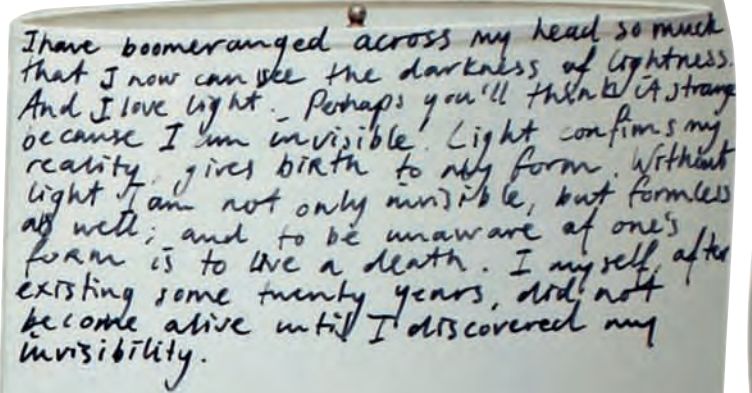 I have boomeranged across my head so much
that I now can see the darkness of lightness.
And I love light. Perhaps you'll think it strange
because I am invisible. Light confirms my
reality, gives birth to my form. Without
light I am not only invisible, but formless
as well; and to be unaware of one's
form is to live a death. I myself, after
existing some twenty years, did not
become alive until I discovered my
invisibility.